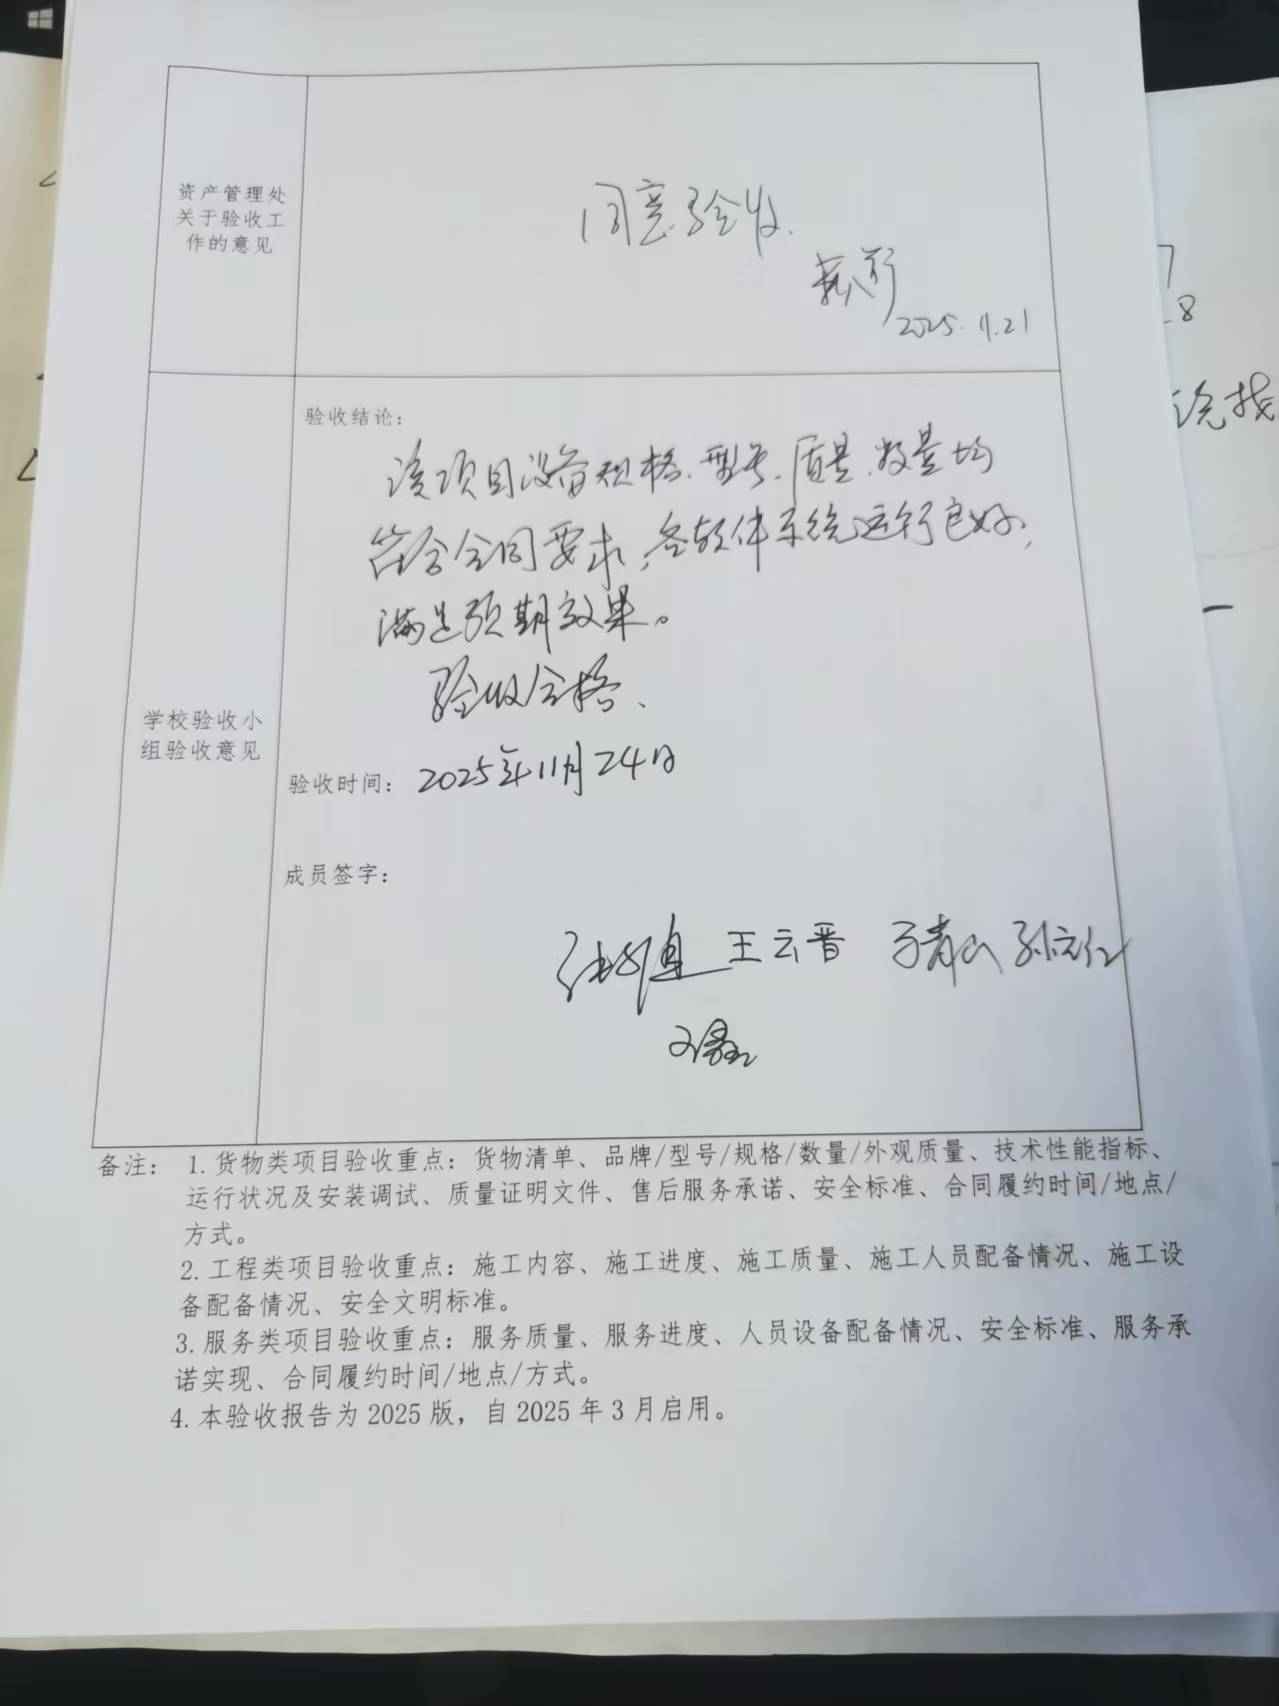 资产管理处
关于验收工
作的意见
同意验收.
2025.11.21
学校验收小
组验收意见
验收结论：
该项目设备规格、型号、质量、数量均
符合合同要求，各软件系统运行良好，
满足预期效果。
验收合格、
验收时间： 2025年11月24日
成员签字：
王云晋 于青山
备注： 1.货物类项目验收重点：货物清单、品牌/型号/规格/数量/外观质量、技术性能指标、
运行状况及安装调试、质量证明文件、售后服务承诺、安全标准、合同履约时间/地点/
方式。
2.工程类项目验收重点：施工内容、施工进度、施工质量、施工人员配备情况、施工设
备配备情况、安全文明标准。
3.服务类项目验收重点：服务质量、服务进度、人员设备配备情况、安全标准、服务承
诺实现、合同履约时间/地点/方式。
4.本验收报告为 2025 版，自 2025 年 3 月启用。